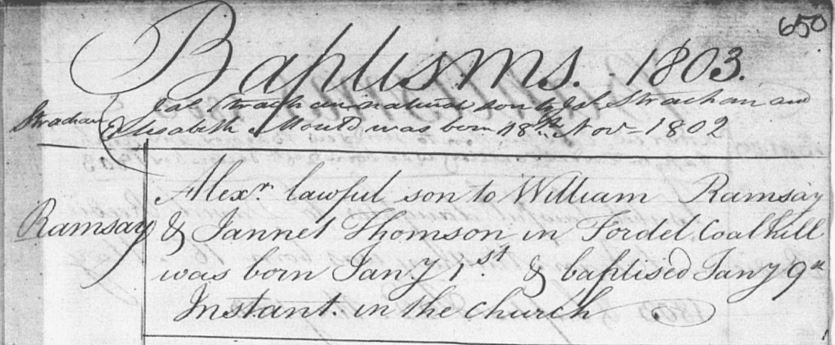 650
Baptisms. 1803.
Strachan
Jas Strachan natural son to Jas Strachan and
Elisabeth Mould was born 18th Novr 1802
Alexr. lawful son to William Ramsay
Ramsay
& Jannet Thomson in Fordel Coalhill
was born Jany 1st. & baptised Jany 9th
Instant. in the Church.